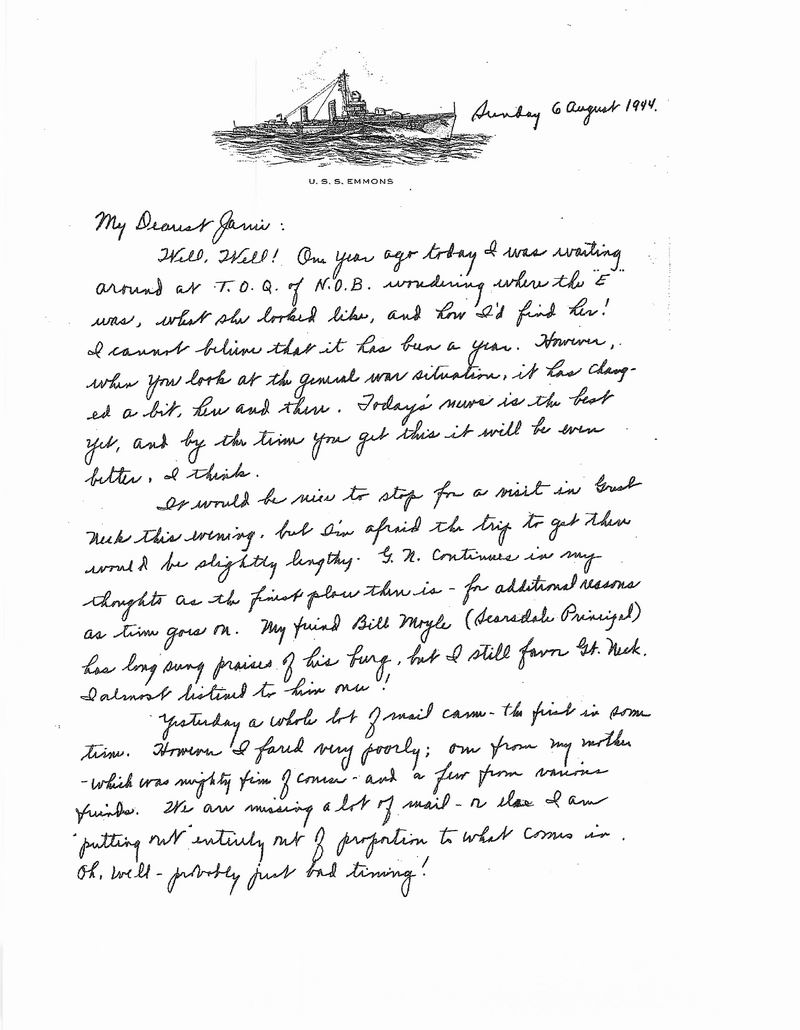 Sunday 6 August 1944.
U. S. S. EMMONS
My Dearest Janie :
Well, Well! One year ago today I was waiting
around at T.O.Q. of N.O.B. wondering where the "E"
was, what she looked like, and how I'd find her!
I cannot believe that it has been a year. However,
when you look at the general war situation, it has chang-
ed a bit, here and there. Today's news is the best
yet, and by the time you get this it will be even
better, I think.
It would be nice to stop for a visit in Great
Neck this evening, but I'm afraid the trip to get there
would be slightly lengthy. G. N. continues in my
thoughts as the finest place there is - for additional reasons
as time goes on. My friend Bill Moyle (Scarsdale Principal)
has long sung praises of his burg, but I still favor Gt. Neck.
I almost listened to him once!
Yesterday a whole lot of mail came - the first in some
time. However I fared very poorly; one from my mother
- which was mighty fine of course - and a few from various
friends. We are missing a lot of mail - or else I am
"putting out" entirely out of proportion to what comes in.
Oh, well - probably just bad timing!